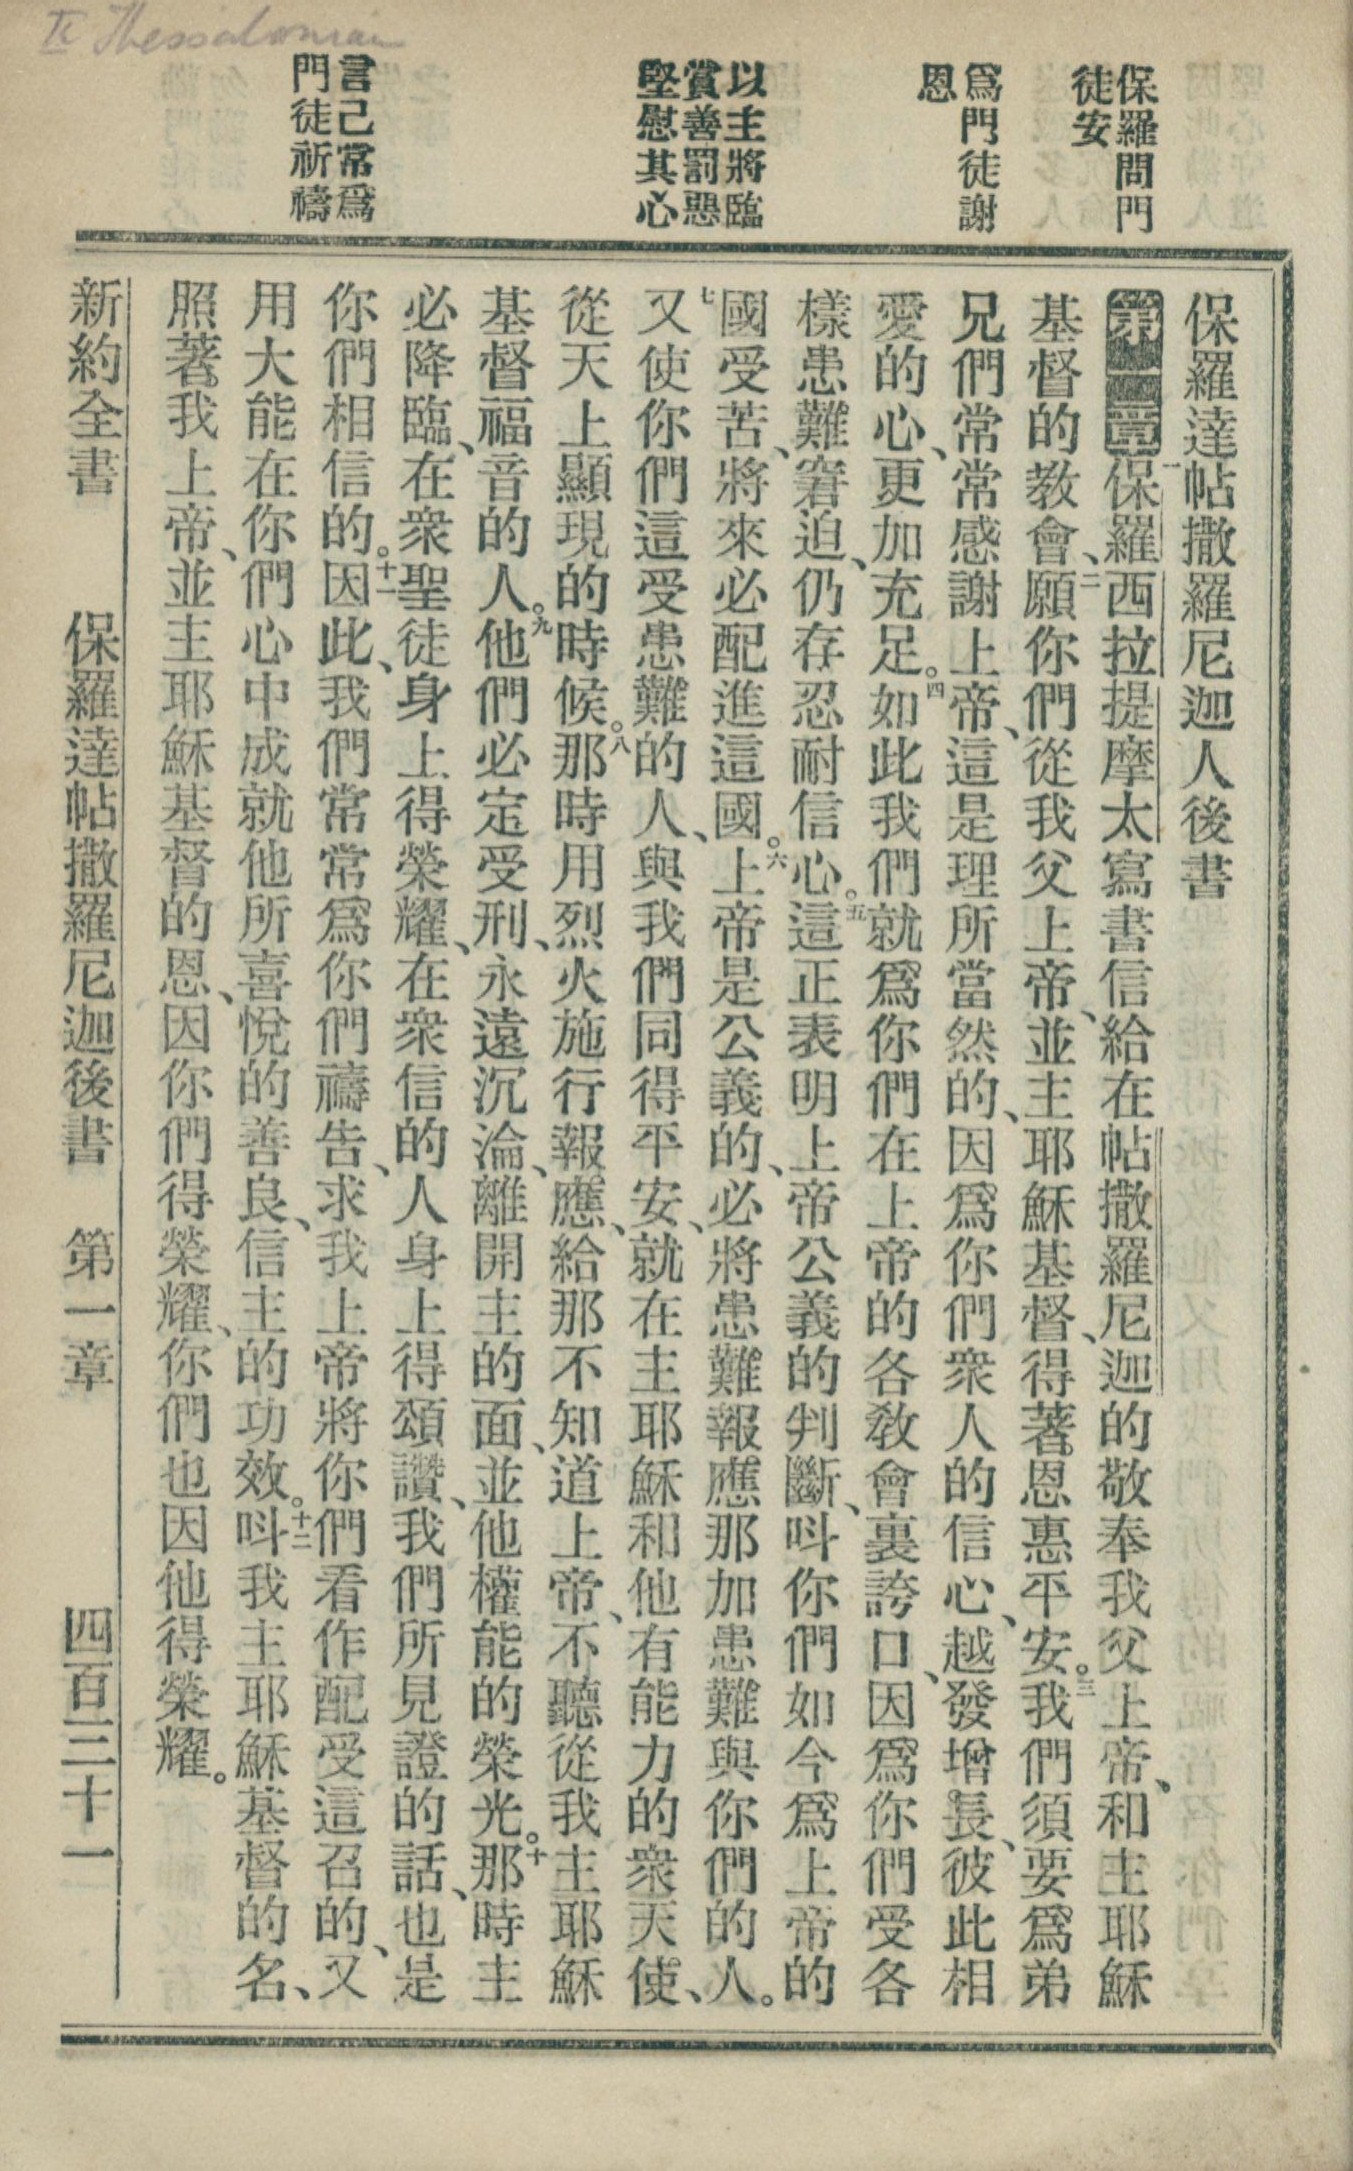 II Thessalonian
保羅問門
徒安
爲門徒謝
恩
以主將臨
賞善罰惡
堅慰其心
言己常爲
門徒祈禱
保羅達帖撒羅尼迦人後書
第一章一保羅西拉提摩太寫書信給在帖撒羅尼迦的敬奉我父上帝、和主耶穌
基督的教會、二願你們從我父上帝、並主耶穌基督、得著恩惠平安。三我們須要爲弟
兄們常常感謝上帝、這是理所當然的、因爲你們衆人的信心、越發增長、彼此相
愛的心、更加充足。四如此我們就爲你們在上帝的各教會裏誇口、因爲你們受各
樣患難窘迫、仍存忍耐信心。五這正表明上帝公義的判斷、呌你們如今爲上帝的
國受苦、將來必配進這國。六上帝是公義的、必將患難報應那加患難與你們的人。
七又使你們這受患難的人、與我們同得平安、就在主耶穌和他有能力的衆天使、
從天上顯現的時候。八那時用烈火施行報應、給那不知道上帝、不聽從我主耶穌
基督福音的人。九他們必定受刑、永遠沉淪、離開主的面、並他權能的榮光。十那時主
必降臨、在衆聖徒身上得榮耀、在衆信的人身上得頌讚、我們所見證的話、也是
你們相信的。十一因此、我們常常爲你們禱告、求我上帝將你們看作配受這召的、又
用大能在你們心中成就他所喜悅的善良、信主的功效。十二呌我主耶穌基督的名、
照著我上帝、並主耶穌基督的恩、因你們得榮耀、你們也因他得榮耀。
新約全書 保羅達帖撒羅尼迦後書 第一章 四百三十一